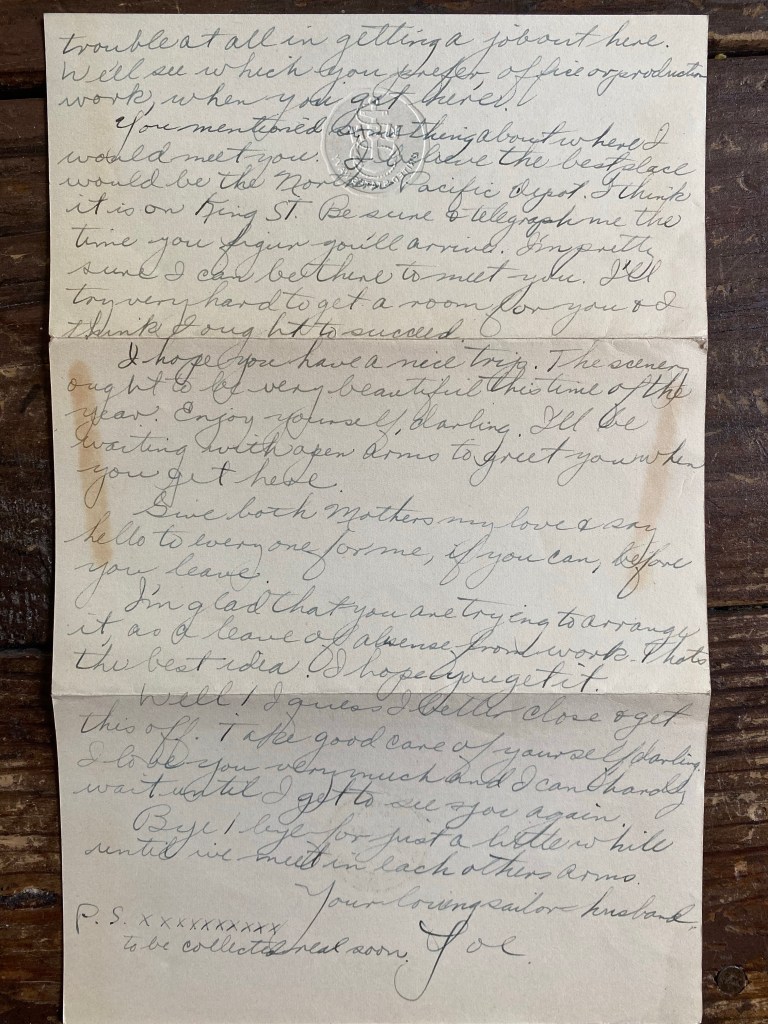 trouble at all in getting a job out here.
We'll see which you prefer, office or production
work, when you get here.
You mentioned something about where I
would meet you. I believe the best place
would be the Northern Pacific depot. I think
it is on King ST. Be sure & telegraph me the
time you figur you'll arrive. I'm pretty
sure I can be there to meet you. I'll
try very hard to get a room for you & I
think I ought to succeed.
I hope you have a nice trip. The scenery
ought to be very beautiful this time of the
year. Enjoy yourself, darling. I'll be
waiting with open arms to greet you when
you get here.
Give both Mothers my love & say
hello to everyone for me, if you can, before
you leave.
I'm glad that you are trying to arrange
it, as a leave of absense from work. Thats
the best idea. I hope you get it.
Well! I guess I better close & get
this off. Take good care of yourself darling.
I love you very much and I can hardly
wait until I get to see you again.
Bye! bye for just a little while
until we meet in each others arms.
Your loving sailor-husband,
P.S. xxxxxxxxxx
to be collected real soon. Joe